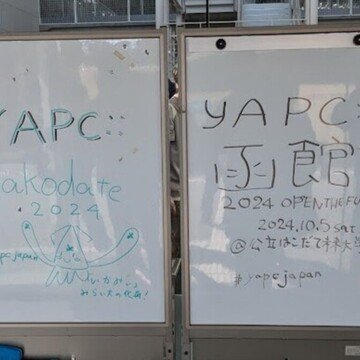 YAPC::
akodate
2024
pcjapan
いかがい
みらい大の化身!
YAPC:
函館
2024 OPEN THE FU
2024.10.5 sat
@公立はこだて未来大学
#yapcjapan